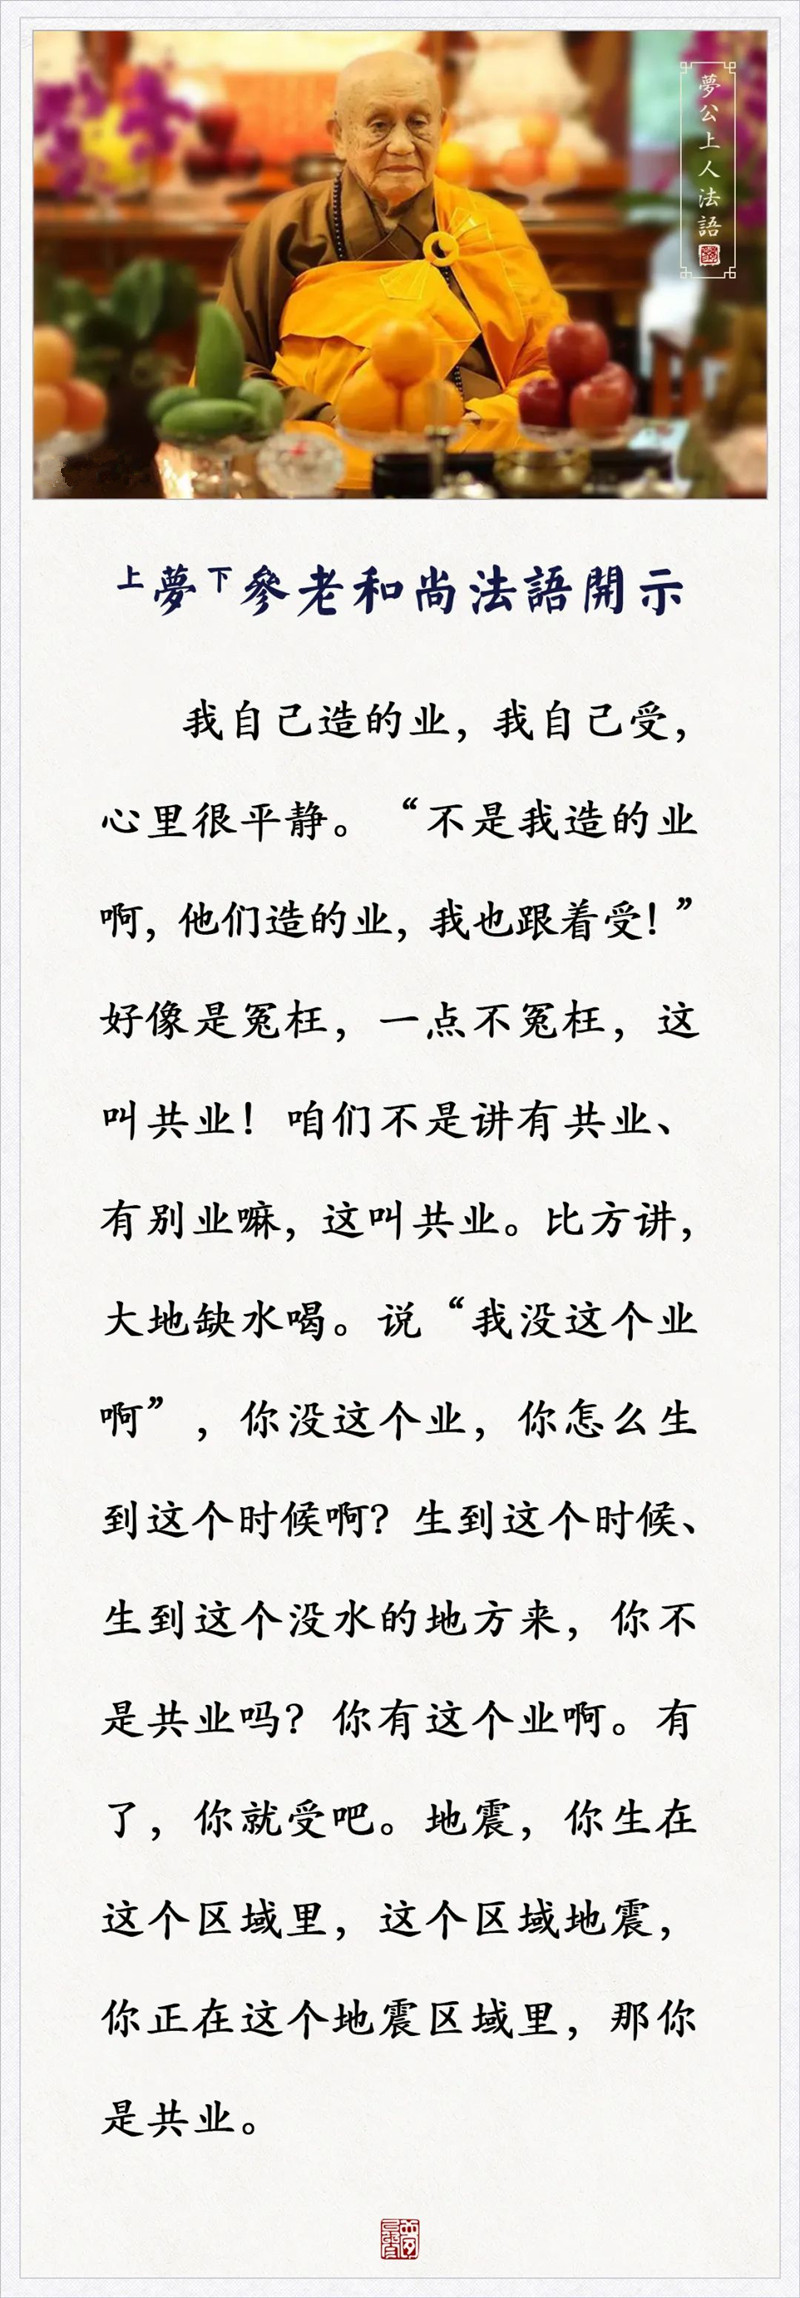 夢公上人法語
上夢下參老和尚法語開示
我自己造的业，我自己受，
心里很平静。“不是我造的业
啊，他们造的业，我也跟着受！”
好像是冤枉，一点不冤枉，这
叫共业！咱们不是讲有共业、
有别业嘛，这叫共业。比方讲，
大地缺水喝。说“我没这个业
啊”，你没这个业，你怎么生
到这个时候啊？生到这个时候、
生到这个没水的地方来，你不
是共业吗？你有这个业啊。有
了，你就受吧。地震，你生在
这个区域里，这个区域地震，
你正在这个地震区域里，那你
是共业。